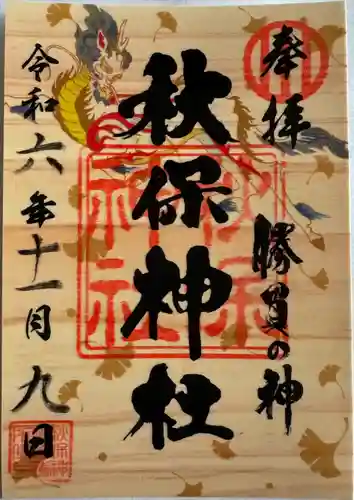 奉拝
勝負の神
秋保神社
令和六年十一月九日
秋保
神社